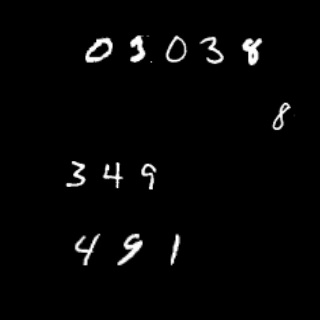 03038
8
349
491